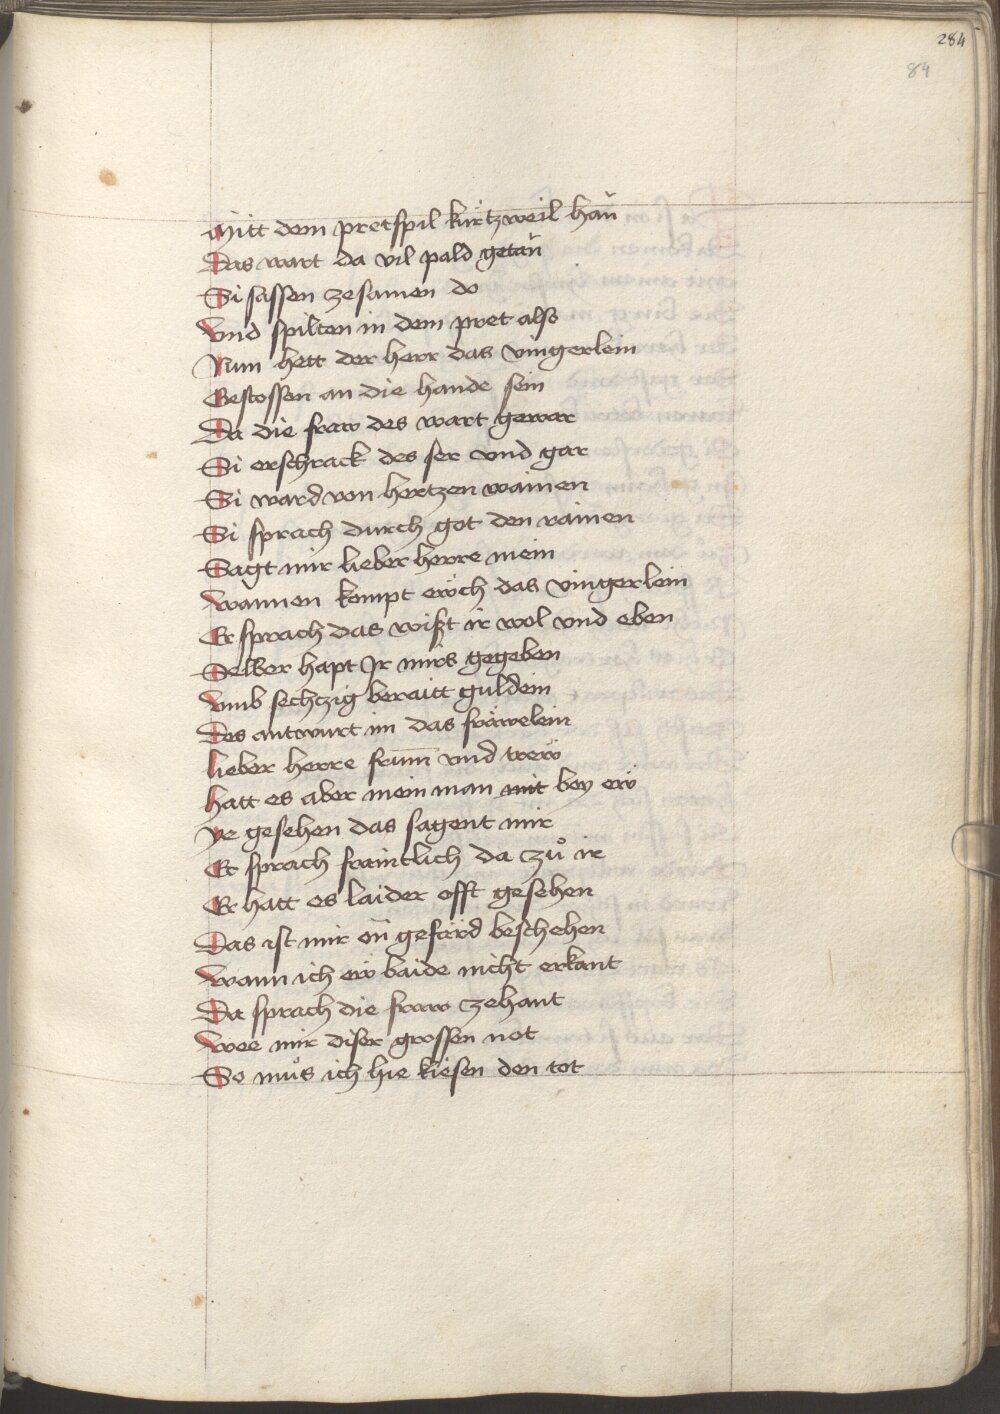 284
84
Mitt dem pretspil kürtzweil han
Das wart da vil pald getan
Si sassen zesamen do
Vnd spilten in dem pret also
Nun hett der herr das vingerlein
Gestossen an die hande sein
Da die fraw des wart gewar
Si erschrack des ser vnd gar
Si ward von hertzen wainen
Si sprach durch got den rainen
Sagt mir lieber herre mein
wannen kompt eẅch das vingerlein
Er sprach das wißt ir wol vnd eben
Selber hapt Jr mirs gegeben
vmb sechtzig beraitt guldein
Des antwurt im das fräwelein
lieber herre frum̅ vnd treẅ
hatt es aber mein man mit bey eẅ
ye gesehen das sagent mir
Er sprach fraintlich da zů ir
Er hatt es laider offt gesehen
Das ist mir on gefärd beschehen
wann ich eẅ baide nicht erkant
Da sprach die fraw zehant
wee mir diser grossen not
So můs ich hie kiesen den tot